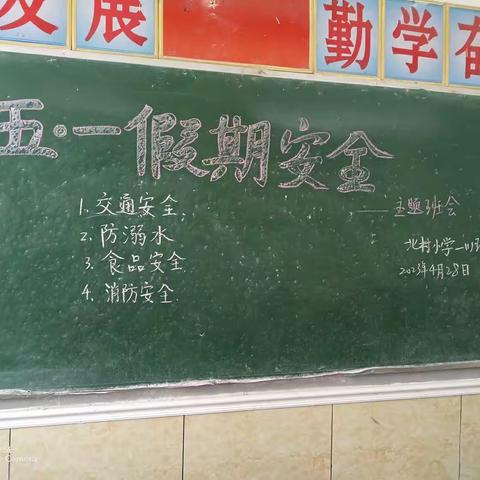 发展 勤学奋
五·一假期安全
——主题班会
1. 交通安全.
2. 防溺水
3. 食品安全
4. 消防安全
北村小学一(1)班
2023年4月28日